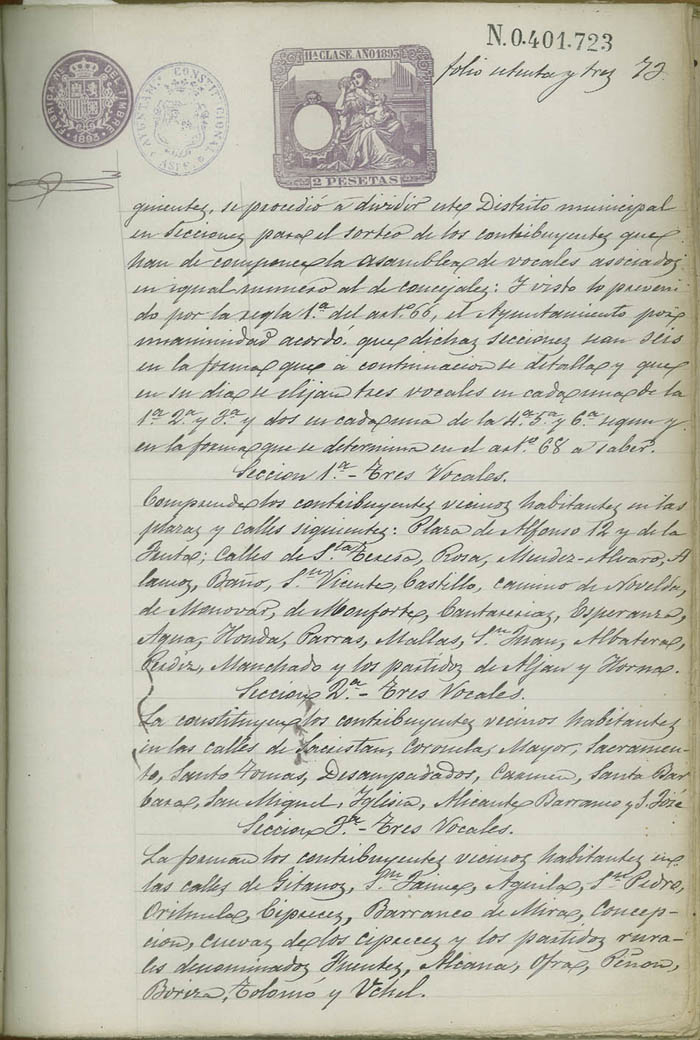 N.0.401.723
11ª CLASE AÑO 1893
folio setenta y tres 73.
FABRICA NAL DEL TIMBRE
1893
AYUNTAM. CONSTITUCIONAL
ASPE
2 PESETAS
guientes, se procedió á dividir este Distrito municipal
en Secciones para el sorteo de los contribuyentes que
han de componer la asamblea de vocales asociados
en igual numero al de concejales: Y visto lo preveni
do por la regla 1.ª del artº 66, el Ayuntamiento por
unanimidad acordó: que dichas secciones sean seis
en la forma que á continuacion se detalla y que
en su dia se elijan tres vocales en cada una de la
1ª 2ª y 3ª y dos en cada una de la 4ª 5ª y 6ª segun y
en la forma que se determina en el artº 68 á saber.
Seccion 1.ª - Tres Vocales.
Comprende los contribuyentes vecinos habitantes en las
plazas y calles siguientes: Plaza de Alfonso 12 y de la
Fruta; Calles de Sta Teresa, Rosa, Mendez-Alvaro, A
lamos, Baño, Sn Vicente, Castillo, camino de Novelda,
de Monovar, de Monforte, Cantarerias, Esperanza,
Agua, Honda, Parras, Mallas, Sn Juan, Albatera,
Perdiz, Manchado y los partidos de Aljau y Horna.
Seccion 2ª - Tres Vocales.
La constituyen los contribuyentes vecinos habitantes
en las calles de Sacristan, Coronela, Mayor, Sacramen-
to, Santo Tomas, Desamparados, Carmen, Santa Bar
bara, San Miguel, Iglesia, Alicante Barranco y S. José
Seccion 3ª - Tres Vocales.
La forman los contribuyentes vecinos habitantes en
las calles de Gitanos, Sn Jaime, Aguila, Sn Pedro,
Orihuela, Cipreces, Barranco de Mira, Concep-
cion, cuevas de los cipreces y los partidos rura-
les denominados Fuentes, Alcana, Ofra, Peñon,
Boriza, Tolomó y Uchel.